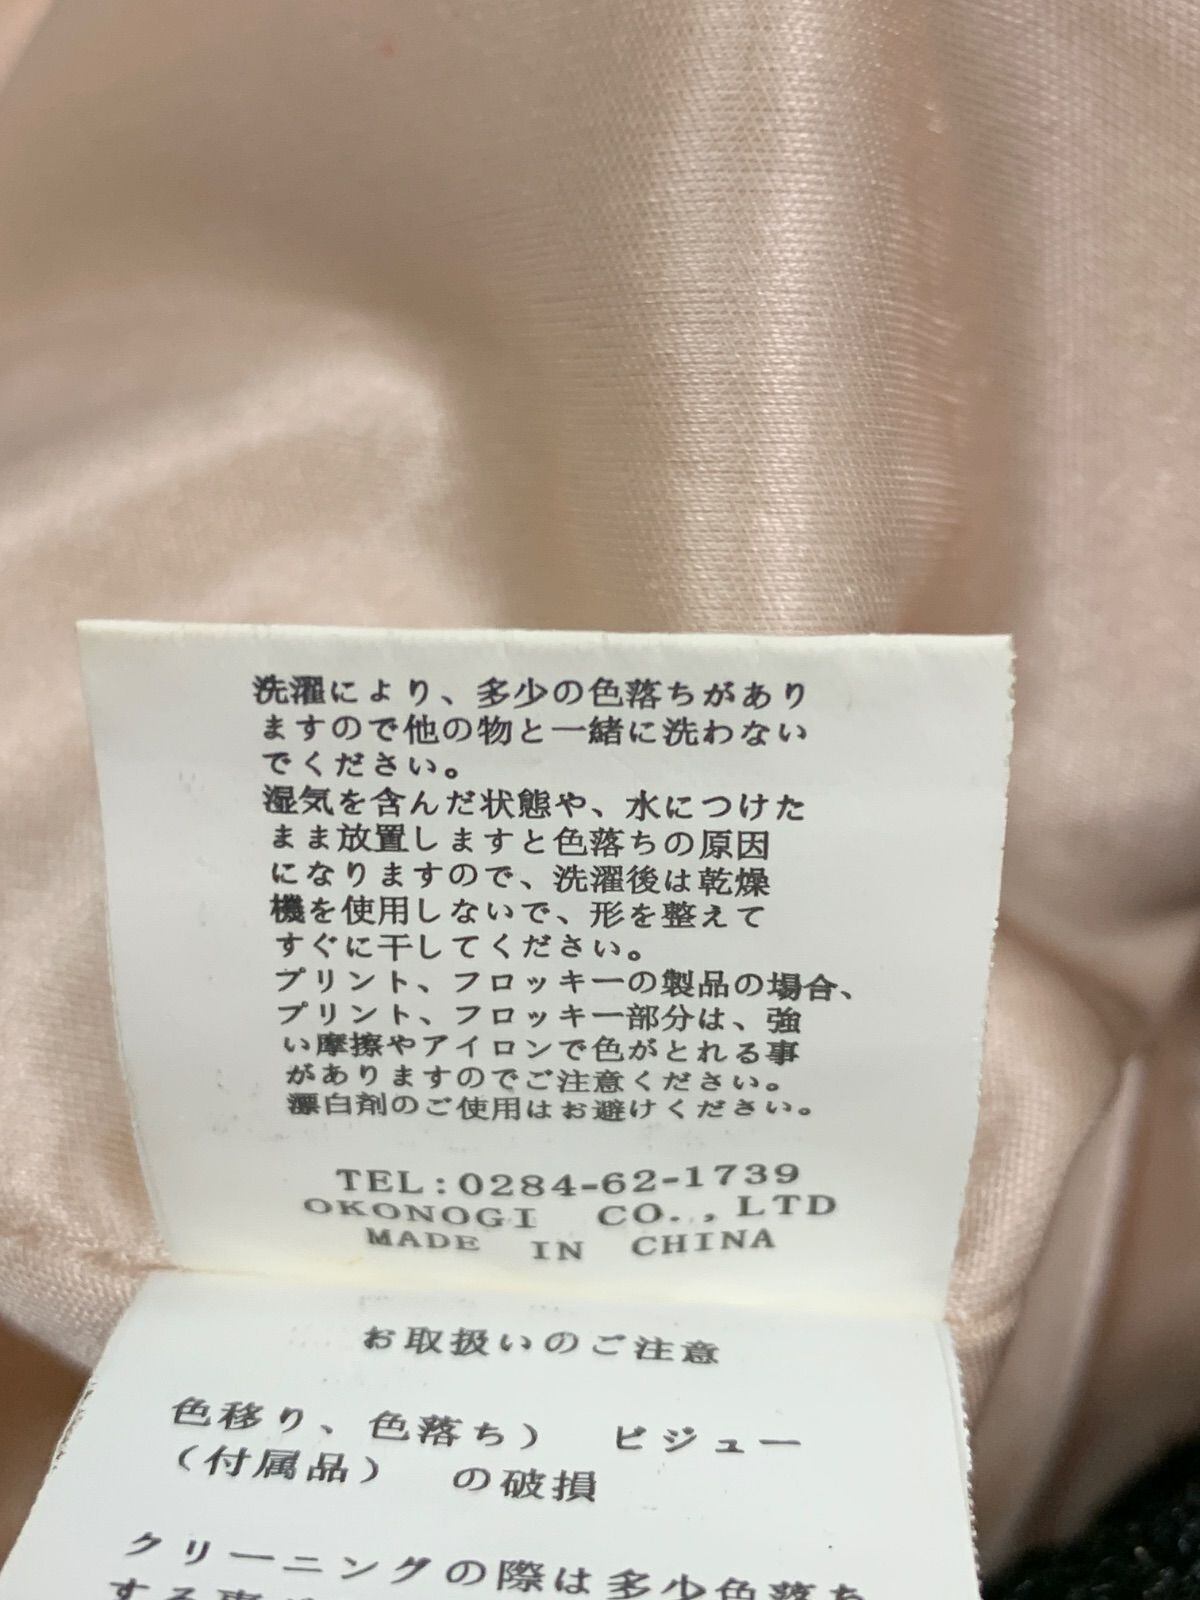 洗濯により、多少の色落ちがあり
ますので他の物と一緒に洗わない
でください。
湿気を含んだ状態や、水につけた
まま放置しますと色落ちの原因
になりますので、洗濯後は乾燥
機を使用しないで、形を整えて
すぐに干してください。
プリント、フロッキーの製品の場合、
プリント、フロッキー部分は、強
い摩擦やアイロンで色がとれる事
がありますのでご注意ください。
漂白剤のご使用はお避けください。
TEL:0284-62-1739
OKONOGI CO.,LTD
MADE IN CHINA
お取扱いのご注意
色移り、色落ち） ビジュー
（付属品） の破損
クリーニングの際は多少色落ち
する事